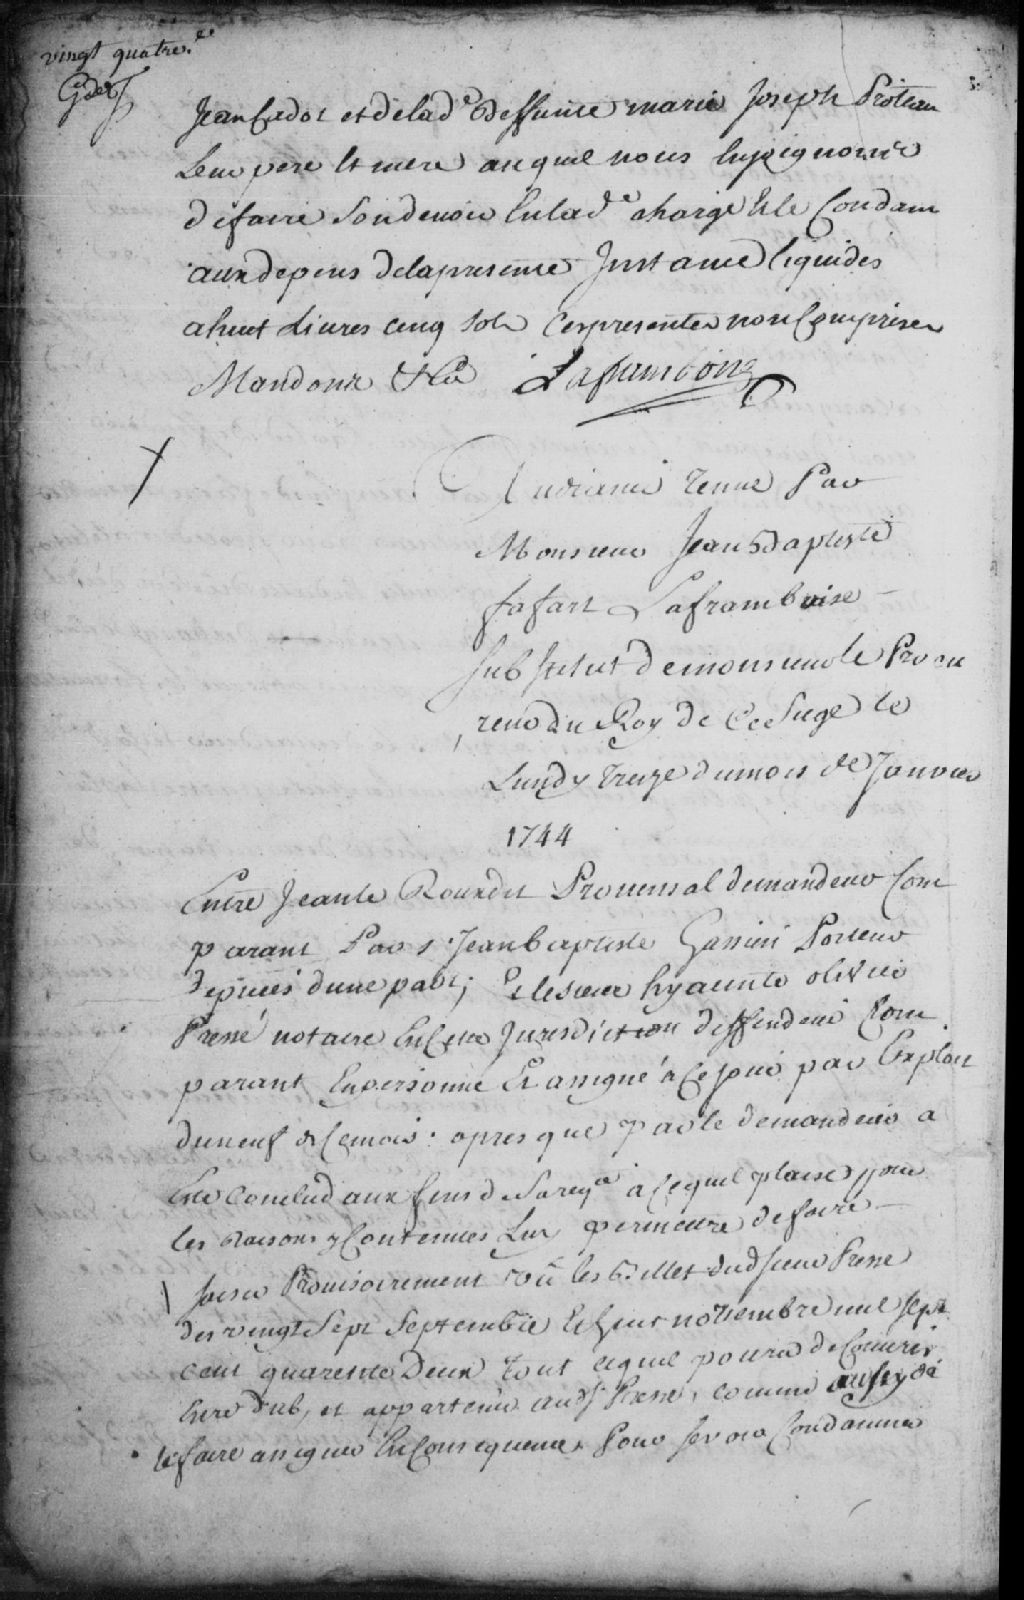 vingt quatre.e
Jean Cadot et de lad.e deffunte marie Joseph Proteau
Leur pere et mere auquel nous Enjoignons
de faire son devoir En lad.e charge Et le Condam
aux depens de la presente Instance liquidés
a huit Livres cinq sols Ces presentes non Comprises
Mandons &ca Laframboise
Audiance tenue Par
Monsieur Jean Baptiste
fafart Laframboise
substitut de monsieur le Procu
reur du Roy de Ce siege le
Lundy treize du mois de Janvier
1744
Entre Jean le Roux dit Provensal demandeur Com
parant Par s. Jean baptiste Gamin Porteur
de pieces d'une part; Et le sieur hyacinte olivier
Pressé notaire En Cette Jurisdiction deffendeur Com
parant En personne Et assigné à Ce jour par Exploit
du neuf de Ce mois: apres que par le demandeur a
Eté Conclud aux fins de sa req.te à Ce quil plaise pour
les Raisons y Contenues Luy permettre de faire
saisir Provisoirement vû les billets dud. sieur Presse
des vingt sept septembre Et huit novembre mil sept
cent quarente Deux tout ce quil poura decouvrir
Etre dub, et appartenir aud. s. Presse, comme aussy de
le faire assigner En Consequence, Pour se voir Condamner